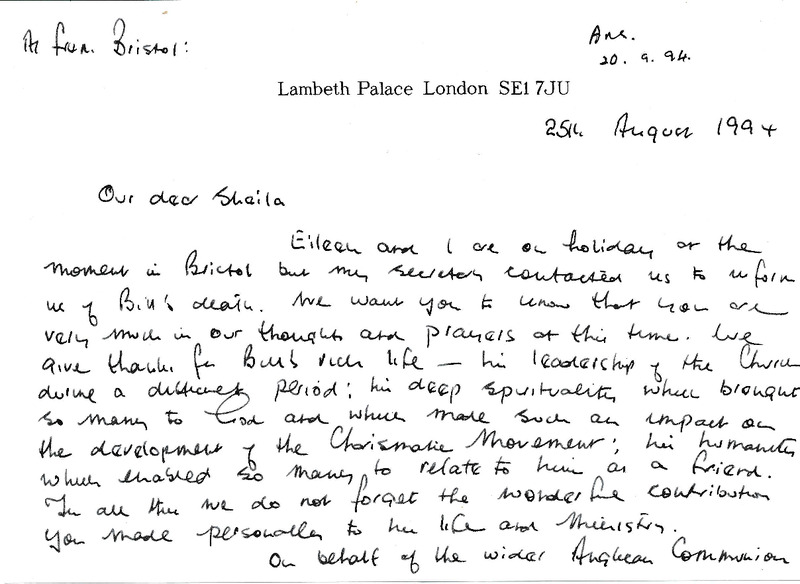 As from Bristol:
Ans.
20.9.94.
Lambeth Palace London SE1 7JU
25th August 1994
Our dear Sheila
Eileen and I are on holiday at the
moment in Bristol but my secretary contacted us to inform
us of Bill's death. We want you to know that you are
very much in our thoughts and prayers at this time. We
give thanks for Bill's rich life — his leadership of the Church
during a difficult period; his deep spirituality which brought
so many to God and which made such an impact on
the development of the Charismatic Movement; his humanity
which enabled so many to relate to him as a friend.
In all this we do not forget the wonderful contribution
you made personally to his life and Ministry.
On behalf of the wider Anglican Communion